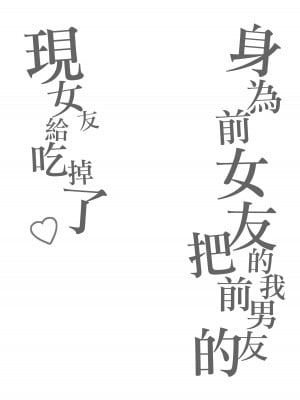 身為前女友的我把前男友的
現女友給吃掉了♡